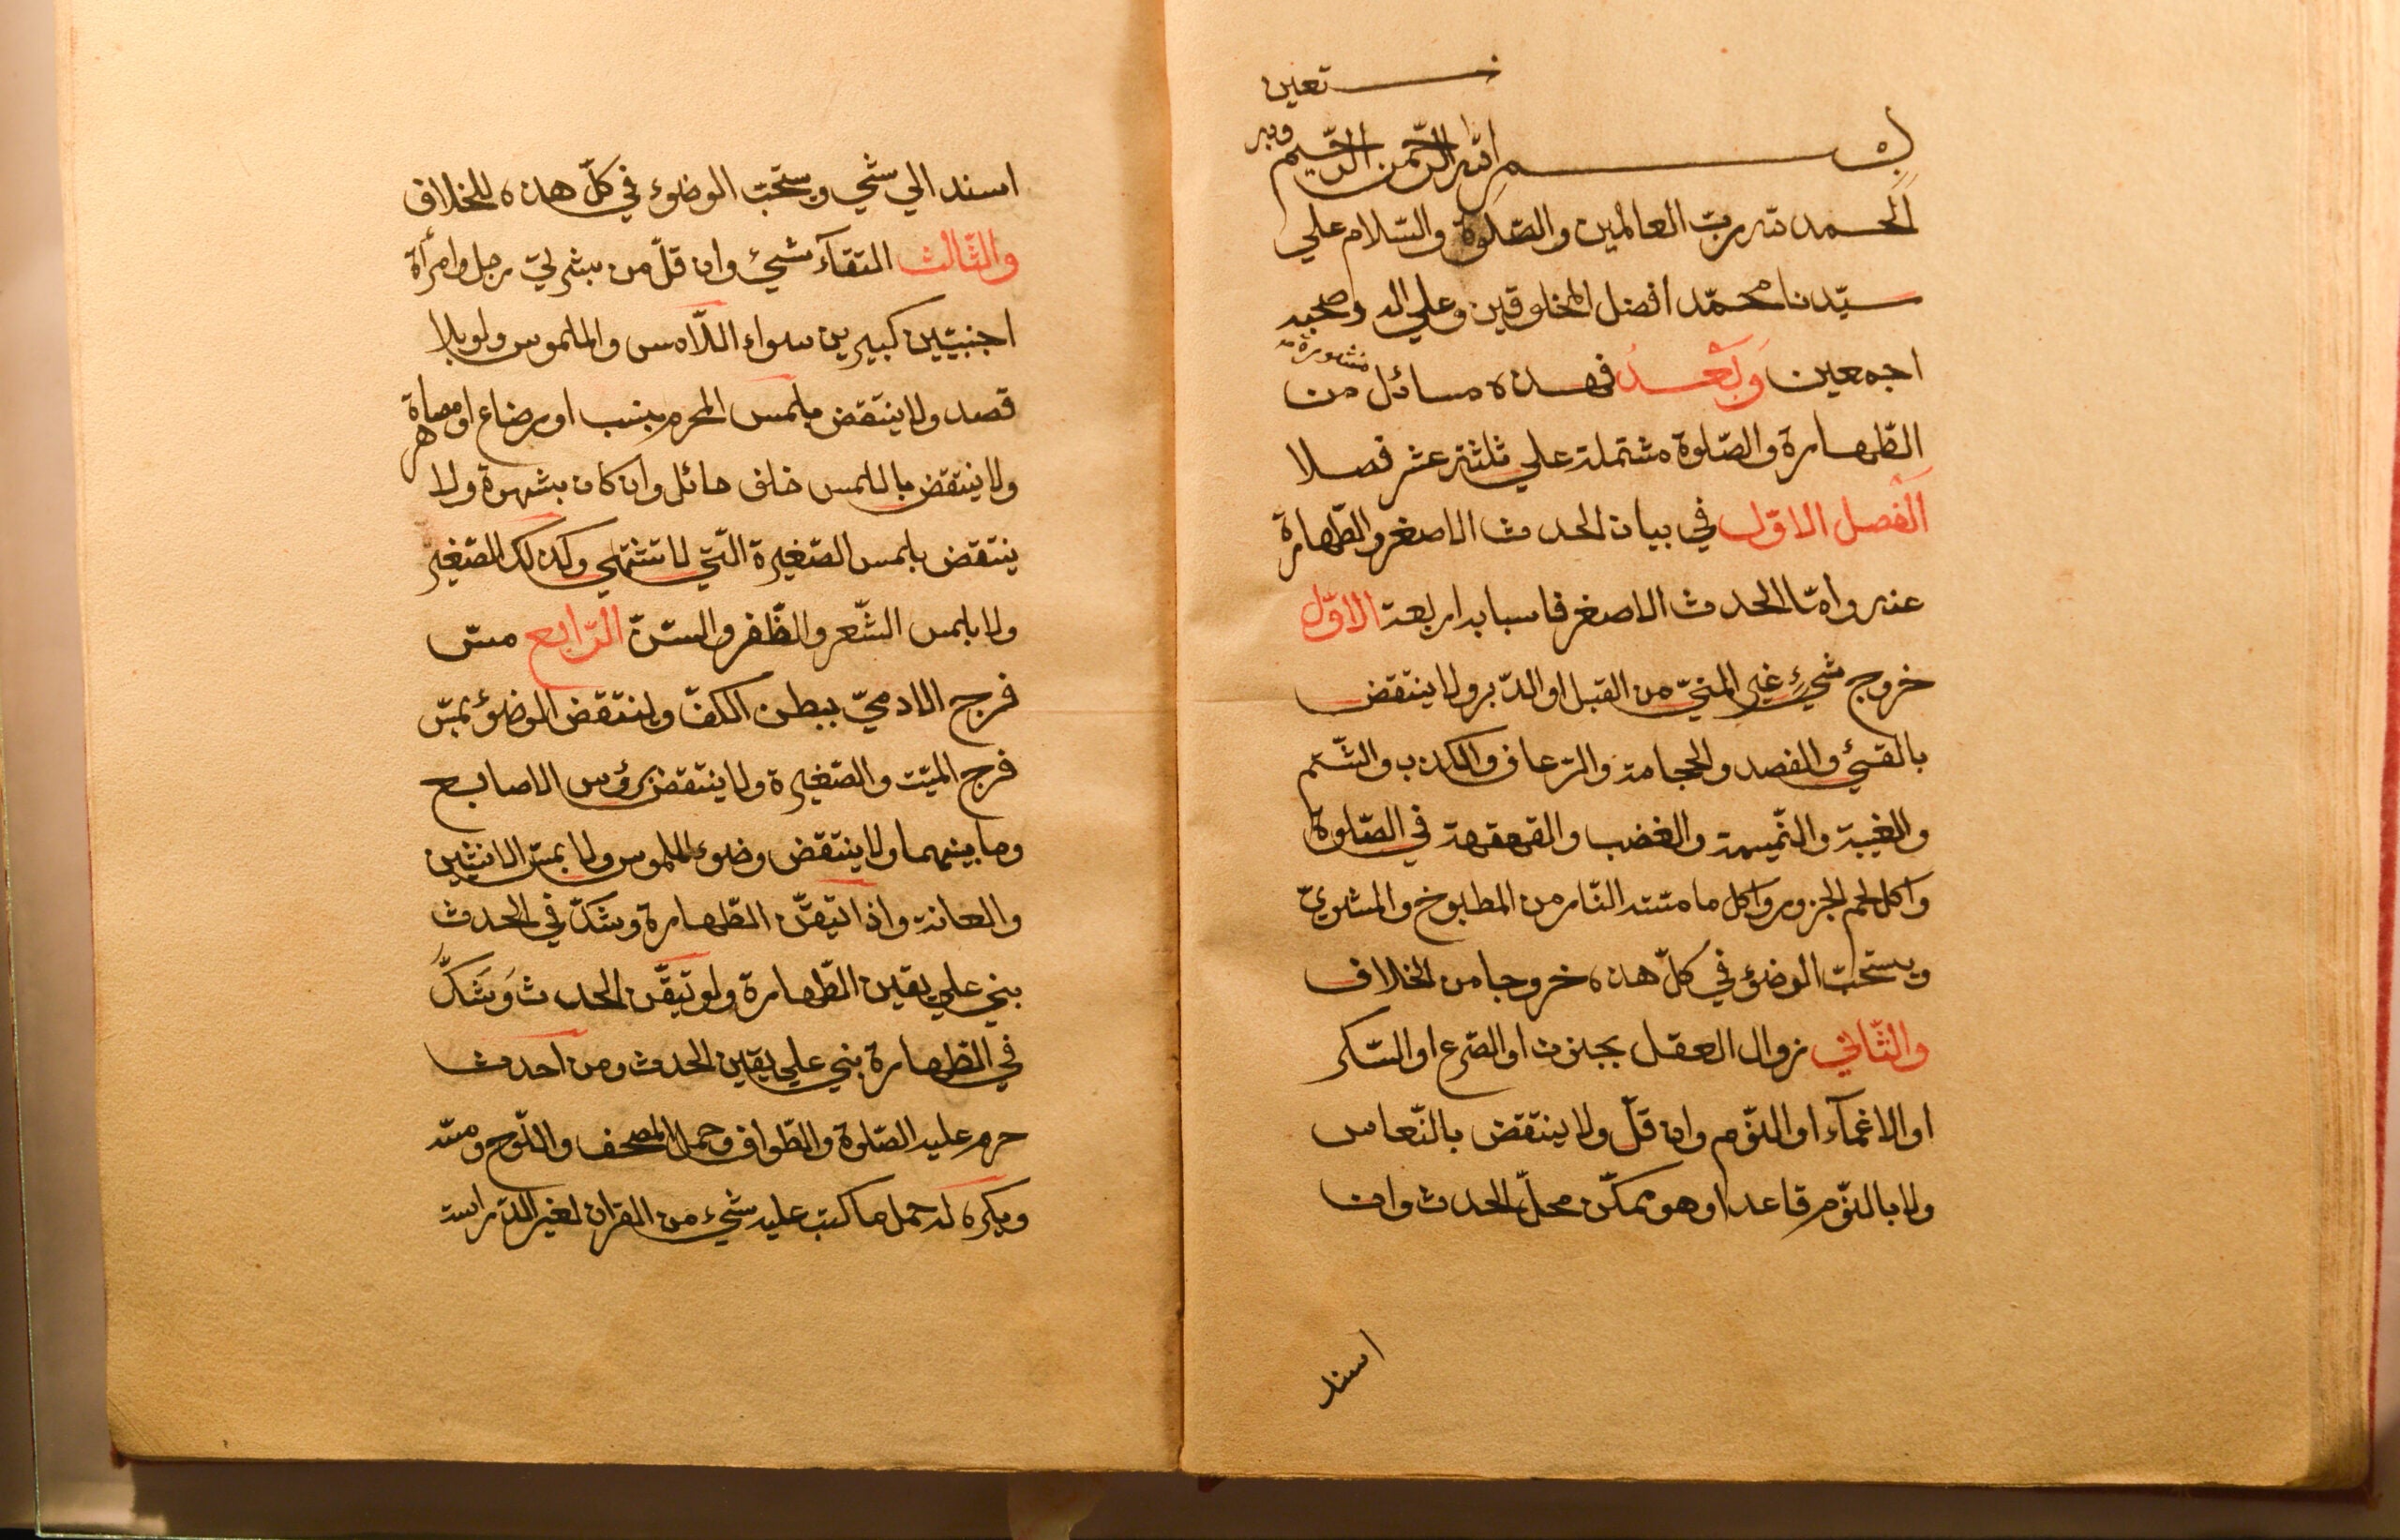 بسم الله الرحمن الرحيم وبه نستعين
الحمد لله رب العالمين والصّلوة والسّلام علي
سيّدنا محمّد افضل المخلوقين وعلي اله وصحبه
اجمعين وَبَعْدُ فهذه مسائل مشهورة من
الطّهارة والصّلوة مشتملة علي ثلثة عشر فصلا
اَلفصل الاوّل في بيان الحدث الاصغر والطّهارة
عنه وامّا الحدث الاصغر فاسبابه اربعة الاوّل
خروج شيءٍ غير المنيّ من القبل او الدّبر ولا ينتقض
بالقيئ والفصد والحجامة والرّعاف والكذب والشّتم
والغيبة والنّميمة والغضب والقهقهة في الصّلوة
واكل لحم الجزور واكل ما مسّته النّار من المطبوخ والمشويّ
ويستحبّ الوضؤ في كلّ هذه خروجا من الخلاف
والثّاني زوال العقل بجنون او الصّرع او السّكر
او الاغمآء او النّوم وان قلّ ولا ينتقض بالنّعاس
ولا بالنّوم قاعدا وهو ممكّن محلّ الحدث وان
اسند
اسند الي شئ ويستحبّ الوضوء في كلّ هذه للخلاف
والثّالث التقآء شيئ وان قلّ من بشرتي رجل وامرأة
اجنبيّين كبيرين سواء اللّامس والملموس ولو بلا
قصد ولا ينتقض بلمس المحرم بنسب او رضاع او مصاهرة
ولا ينتقض باللمس خلف حائل وان كان بشهوة ولا
ينتقض بلمس الصّغيرة الّتي لا تشتهي وكذلك الصّغير
ولا بلمس الشّعر والظّفر والسّنّ الرّابع مسّ
فرج الادميّ ببطن الكفّ وينتقض الوضؤ بمسّ
فرج الميّت والصّغيرة ولا ينتقض برؤس الاصابع
وما بينهما ولا ينتقض وضوء الملموس ولا بمسّ الانثيين
والعانة واذا تيقّن الطّهارة وشكّ في الحدث
بني علي يقين الطّهارة ولو تيقّن الحدث وَشَكَّ
في الطّهارة بني علي يقين الحدث ومن احدث
حرم عليه الصّلوة والطّواف وحمل المصحف واللّوح ومسّه
ويكره له حمل ما كتب عليه شيء من القران لغير الدّراسة